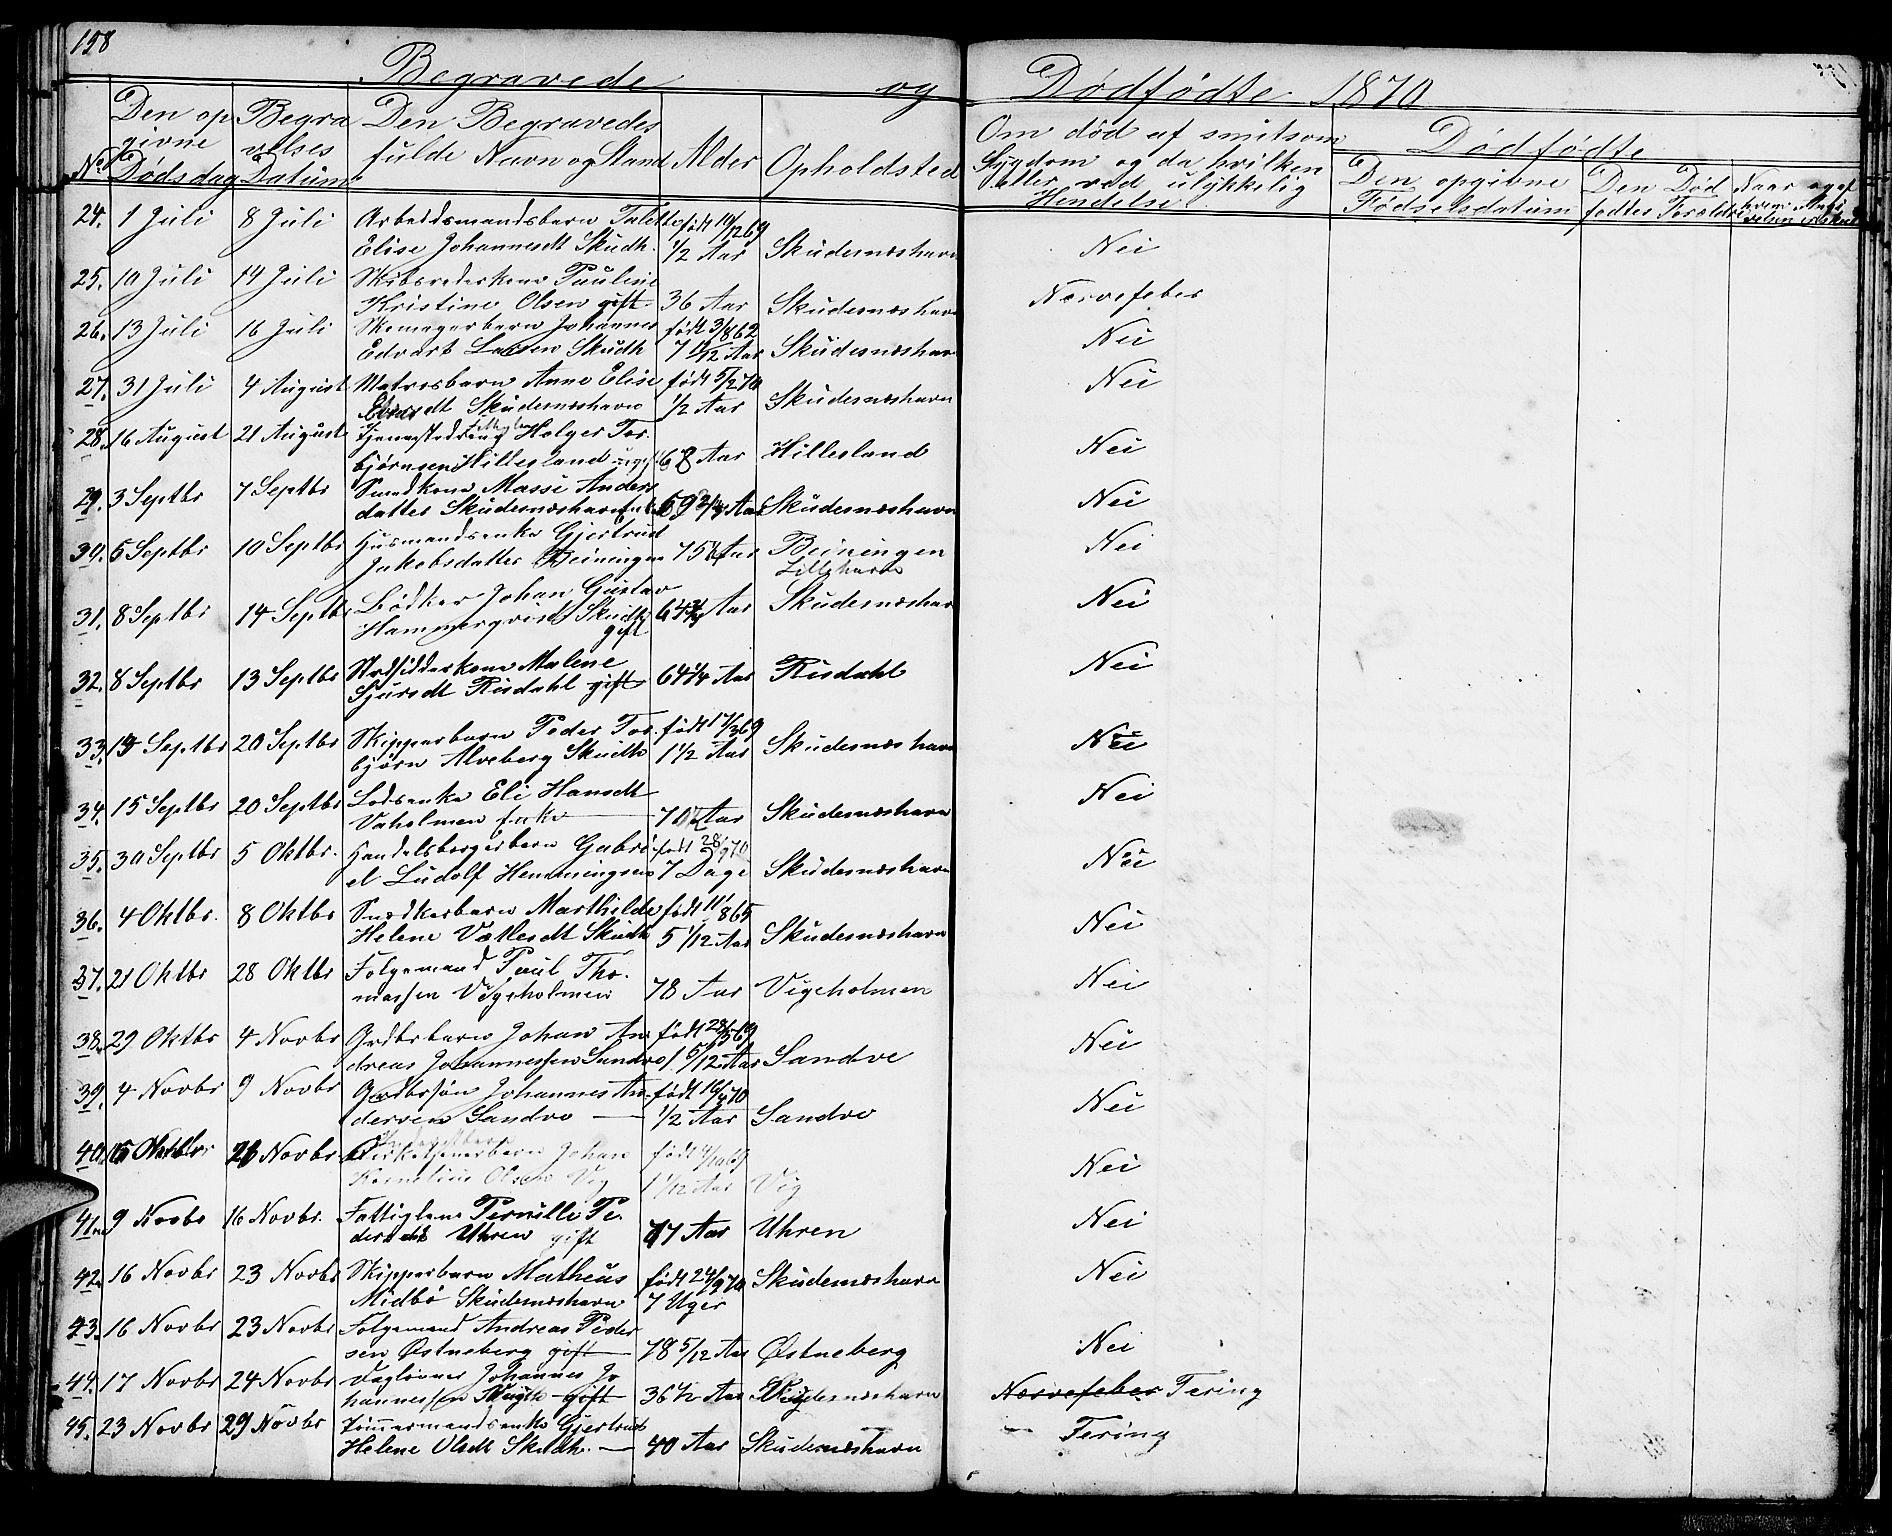 158
Begravede og Dødfødte 1870
No
Den opgivne Dødsdag
Begravelses Datum
Den Begravedes fulde Navn og Stand
Alder
Opholdsted
Om død af smitsom Sygdom og da hvilken eller ved ulykkelig Hendelse
Dødfødte
Den opgivne Fødselsdatum
Den Død fødtes Foreldre
24. 1 Juli 8 Juli Arbeidsmandsbarn født 19/12 69
Elise Johannesdt Skudh. 1/2 Aar Skudesneshavn Nei
25. 10 Juli 14 Juli Skibsrederkone Pauline
Kristine Olsen gift 36 Aar Skudesneshavn Nervefeber
26. 13 Juli 16 Juli Skomagerbarn Johannes født 3/8 62
Edvart Larsen Skudh 7 11/12 Aar Skudesneshavn Nei
27. 31 Juli 4 August Matrosbarn Anne Elise født 5/2 70
Skudesneshavn 1/2 Aar Skudesneshavn Nei
28. 16 August 21 August Holger Tor.
bjørnsen Hillesland 68 Aar Hillesland Nei
29. 3 Septbr 7 Septbr Smedkone Massi Anders
datter Skudesneshavn 69 3/4 Aar Skudesneshavn Nei
30. 6 Septbr 10 Septbr Husmandsenke Gjertrud
Jakobsdatter Beiningen 75 Aar Beiningen Nei
Lillehavn
31. 8 Septbr 14 Septbr Bødker Johan Gustav
Hammerqvist Skudh 64 3/4 Aar Skudesneshavn Nei
gift
32. 8 Septbr 13 Septbr Malene
Sjursdt Risdahl gift 64 1/4 Aar Risdahl Nei
33. 14 Septbr 20 Septbr Skipperbarn Peder Tor. født 17/3 69
bjørn Alveberg Skudh 1 1/2 Aar Skudesneshavn Nei
34. 15 Septbr 20 Septbr Lodsenke Eli Hansdt
Vaholmen Enke 70 Aar Skudesneshavn Nei
35. 30 Septbr 5 Oktbr. Handelsborgerbarn Gabri født 28/9 70
el Ludolf Hemmingsen 7 Dage Skudesneshavn Nei
36. 4 Oktbr. 8 Oktbr Snedkerbarn Marthilde født 11/8 65
Helene Vatlesdt Skudh 5 1/12 Aar Skudesneshavn Nei
37. 21 Oktbr 28 Oktbr Folgemand Paul Tho.
massen Vigeholmen 78 Aar Vigeholmen Nei
38. 29 Oktbr 4 Novbr Grdbrbarn Johan An født 28/5 69
dreas Johannessen Sandve 1 5/12 Aar Sandve Nei
39. 4 Novbr 9 Novbr Johannes An. født 16/4 70
dersen Sandve 1/2 Aar Sandve Nei
40. 21 Novbr Kirketjenerbarn Johan født 4/10 69
Kornelius Olsen Vig 1 1/12 Aar Vig Nei
41. 9 Novbr 16 Novbr. Fattiglem Pernille Pe.
dersdt Uhren gift 77 Aar Uhren Nei
42. 16 Novbr 23 Novbr Skipperbarn Matheus født 24/9 70 Skudesneshavn Nei
Midbø Skudesneshavn 7 Uger
43. 16 Novbr 23 Novbr Folgemand Andreas Peder
sen Østneberg gift 78 5/12 Aar Østneberg Nei
44. 17 Novbr 24 Novbr Dagløner Johannes Jo
hannessen gift 36 1/2 Aar Skudesneshavn Nervefeber Tering
45. 23 Novbr 29 Novbr Tømmermandsenke Gjertrud
Helene Olsdt Skudh. 40 Aar Skudesneshavn Tering